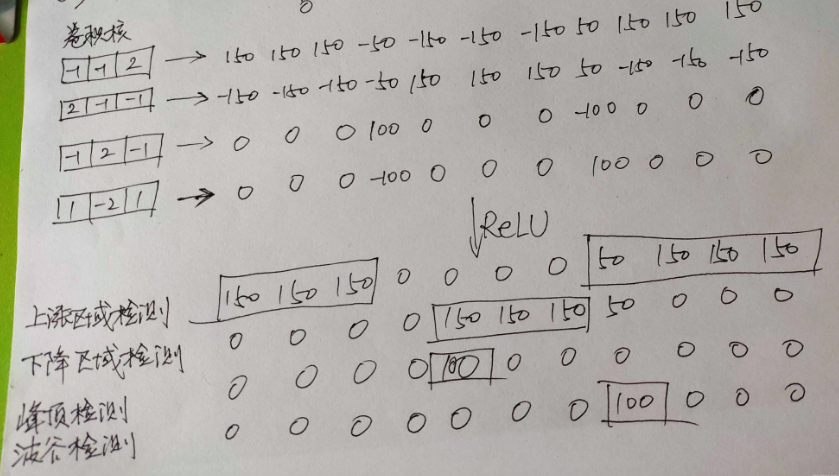 卷积核
-1 -1 2 → 150 150 150 -50 -150 -150 -150 50 150 150 150
2 -1 -1 → -150 -150 -150 -50 150 150 150 50 -150 -150 -150
-1 2 -1 → 0 0 0 100 0 0 0 -100 0 0 0
1 -2 1 → 0 0 0 -100 0 0 0 100 0 0 0
↓ReLU
上涨区域检测 150 150 150 0 0 0 0 50 150 150 150
下降区域检测 0 0 0 0 150 150 150 50 0 0 0
峰顶检测 0 0 0 0 100 0 0 0 0 0 0
波谷检测 0 0 0 0 0 0 0 100 0 0 0